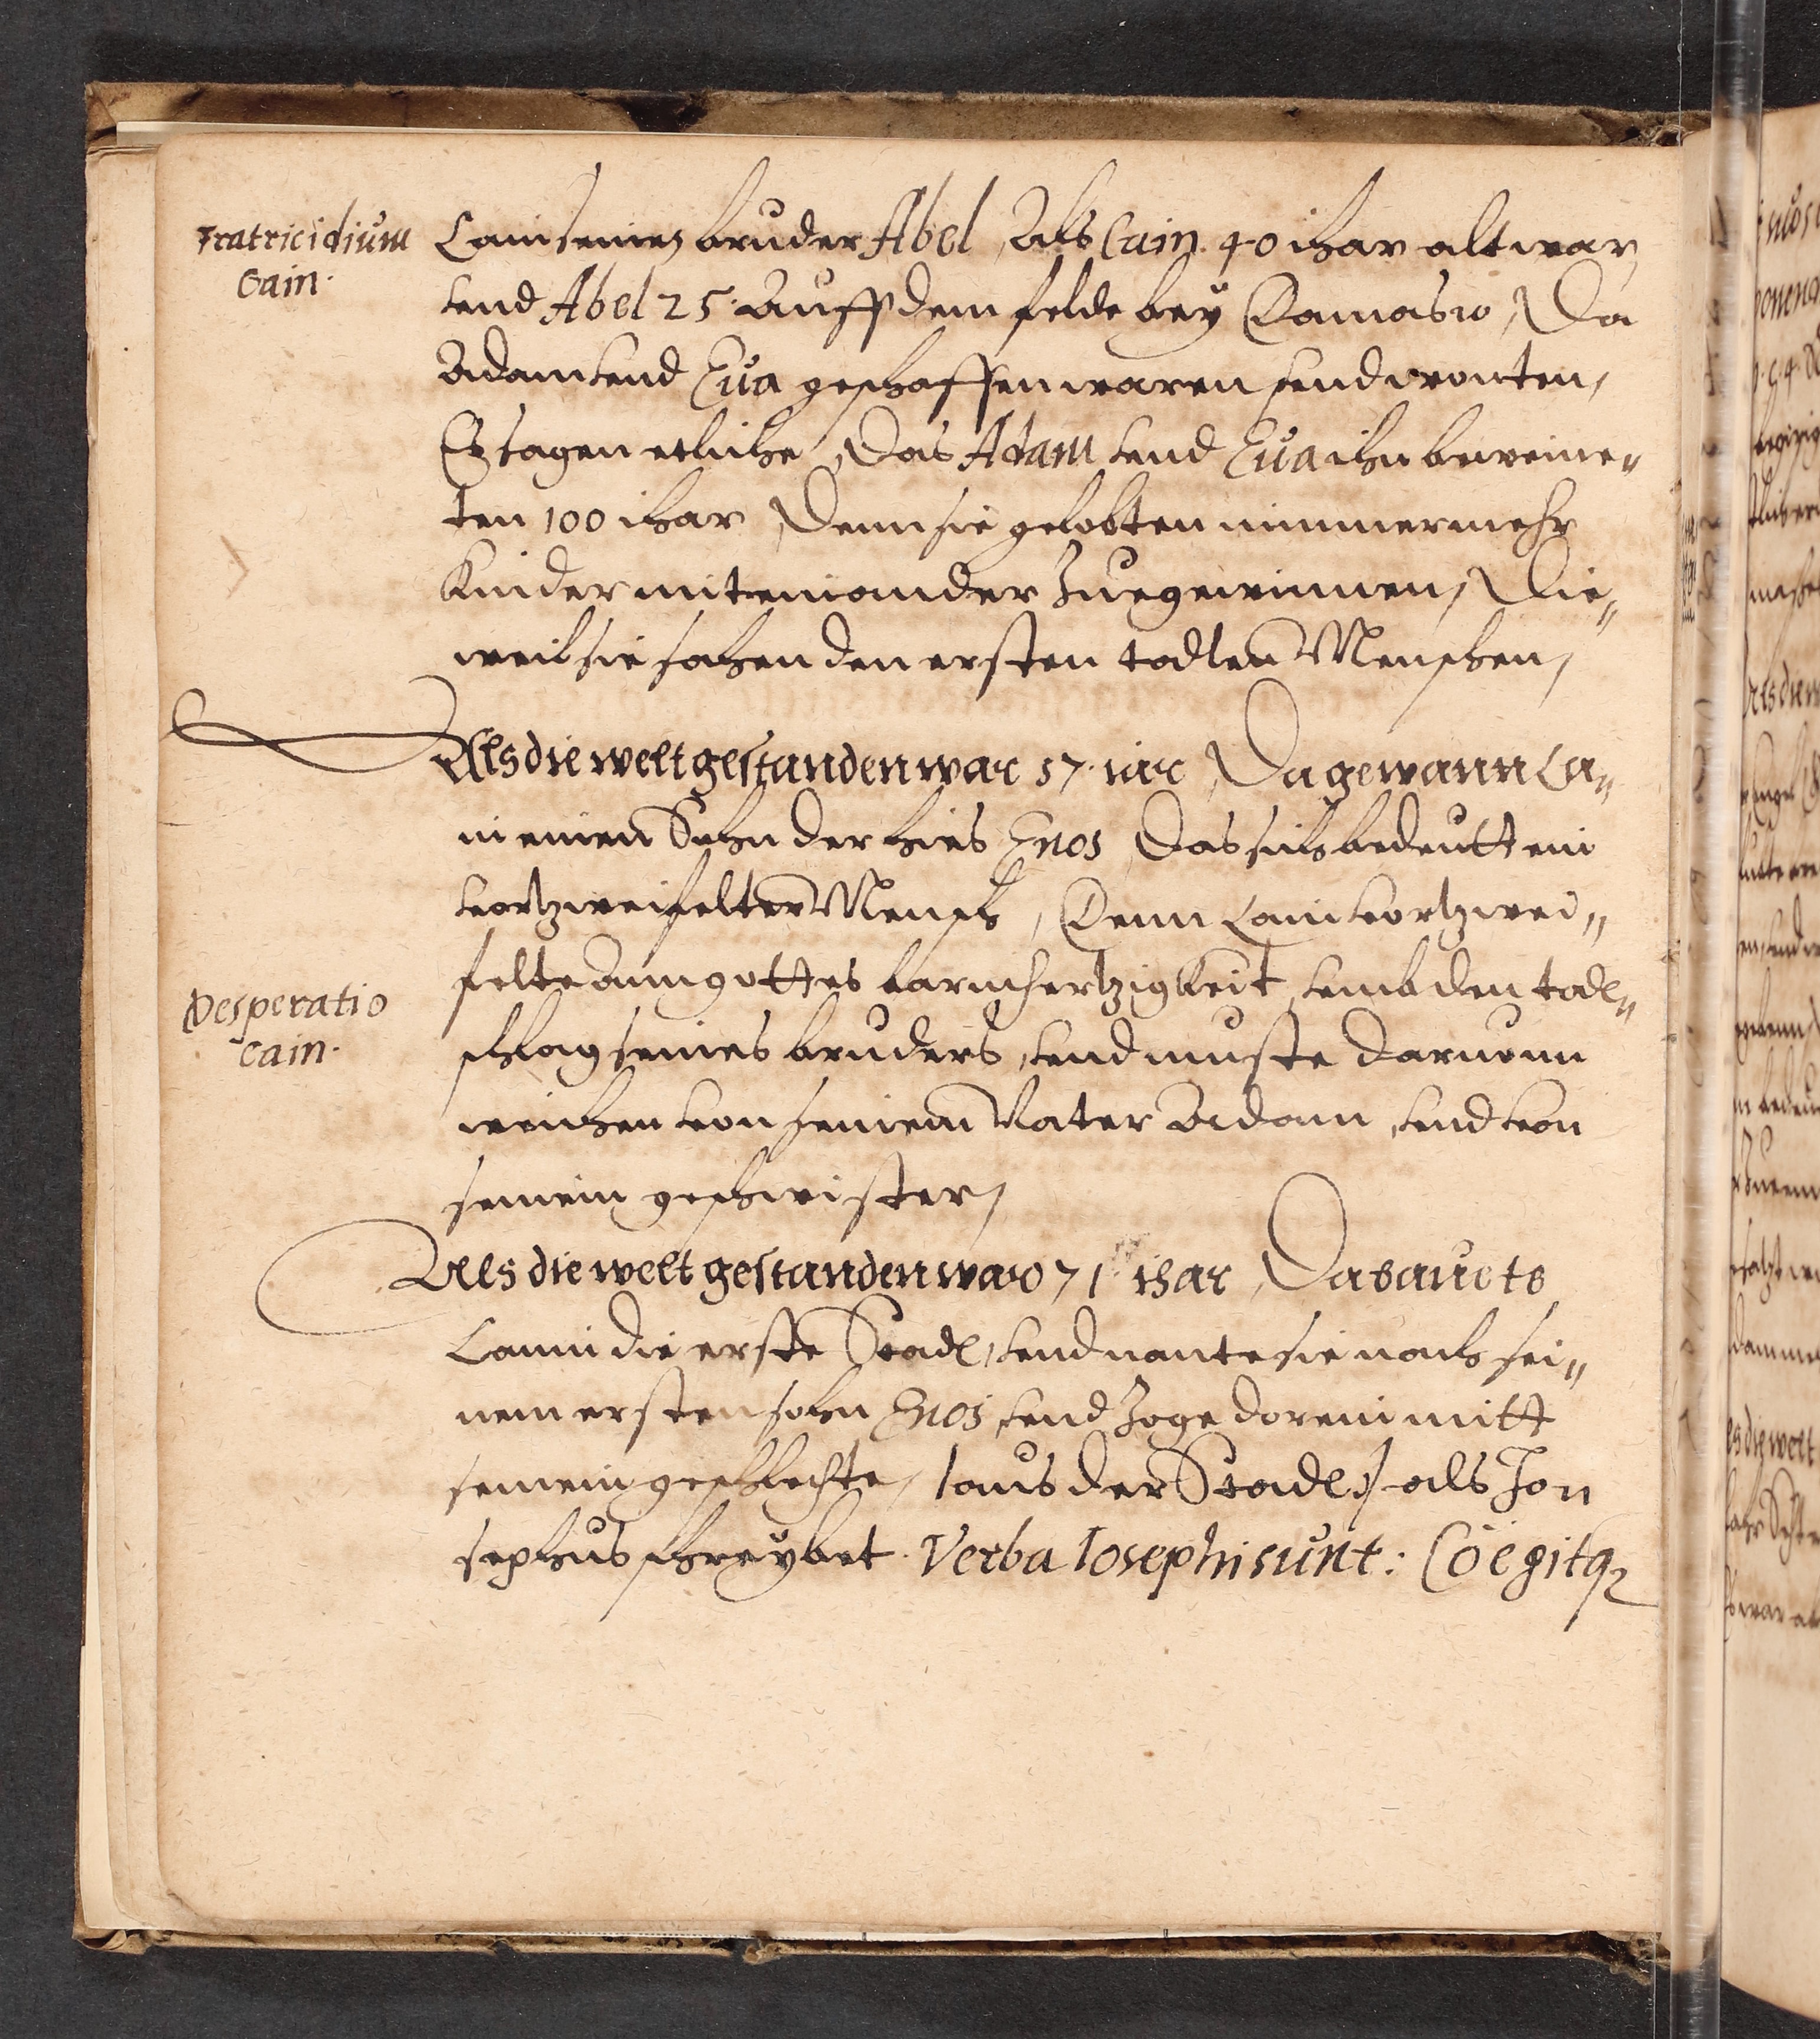 Fratricidium
Cain.
Cain seinen bruder Abel, Als Cain. 40 ihar alt war,
vnd Abel 25. Auff dem felde bey Damasco, Da
Adam vnd Eua geschaffen waren vnd wonten,
Es sagen etliche, Das Adam vnd Eua ihn beweine„
ten 100 ihar, Denn sie gelobten nimmermehr
Kinder mit einander Zue gewinnen, Die„
weil sie sahen den ersten todten Menschen,
Als die welt gestanden war 57. iar, Da gewann Ca„
in einen Sohn der hies Enos, Das sich bedeutt ein
vortzweifelter Mensch, Denn Cain vortzwei„
felte ann gottes barmhertzigkeit, vmb den todt„
Desperatio
Cain.
schlag seines bruders, vnd muste darumm
weichen von seinem Vater Adam, vnd von
seinem geschwister,
Als die welt gestanden war 71. ihar, Da bauete
Cain die erste Stadt, vnd nante sie nach sei„
nem ersten sohn Enos, vnd Zoge dorein mitt
seinem geschlechte, /aus der Stadt:/ als Jo„
sephus schreybet. Verba Iosephi sunt: Coëgitq3